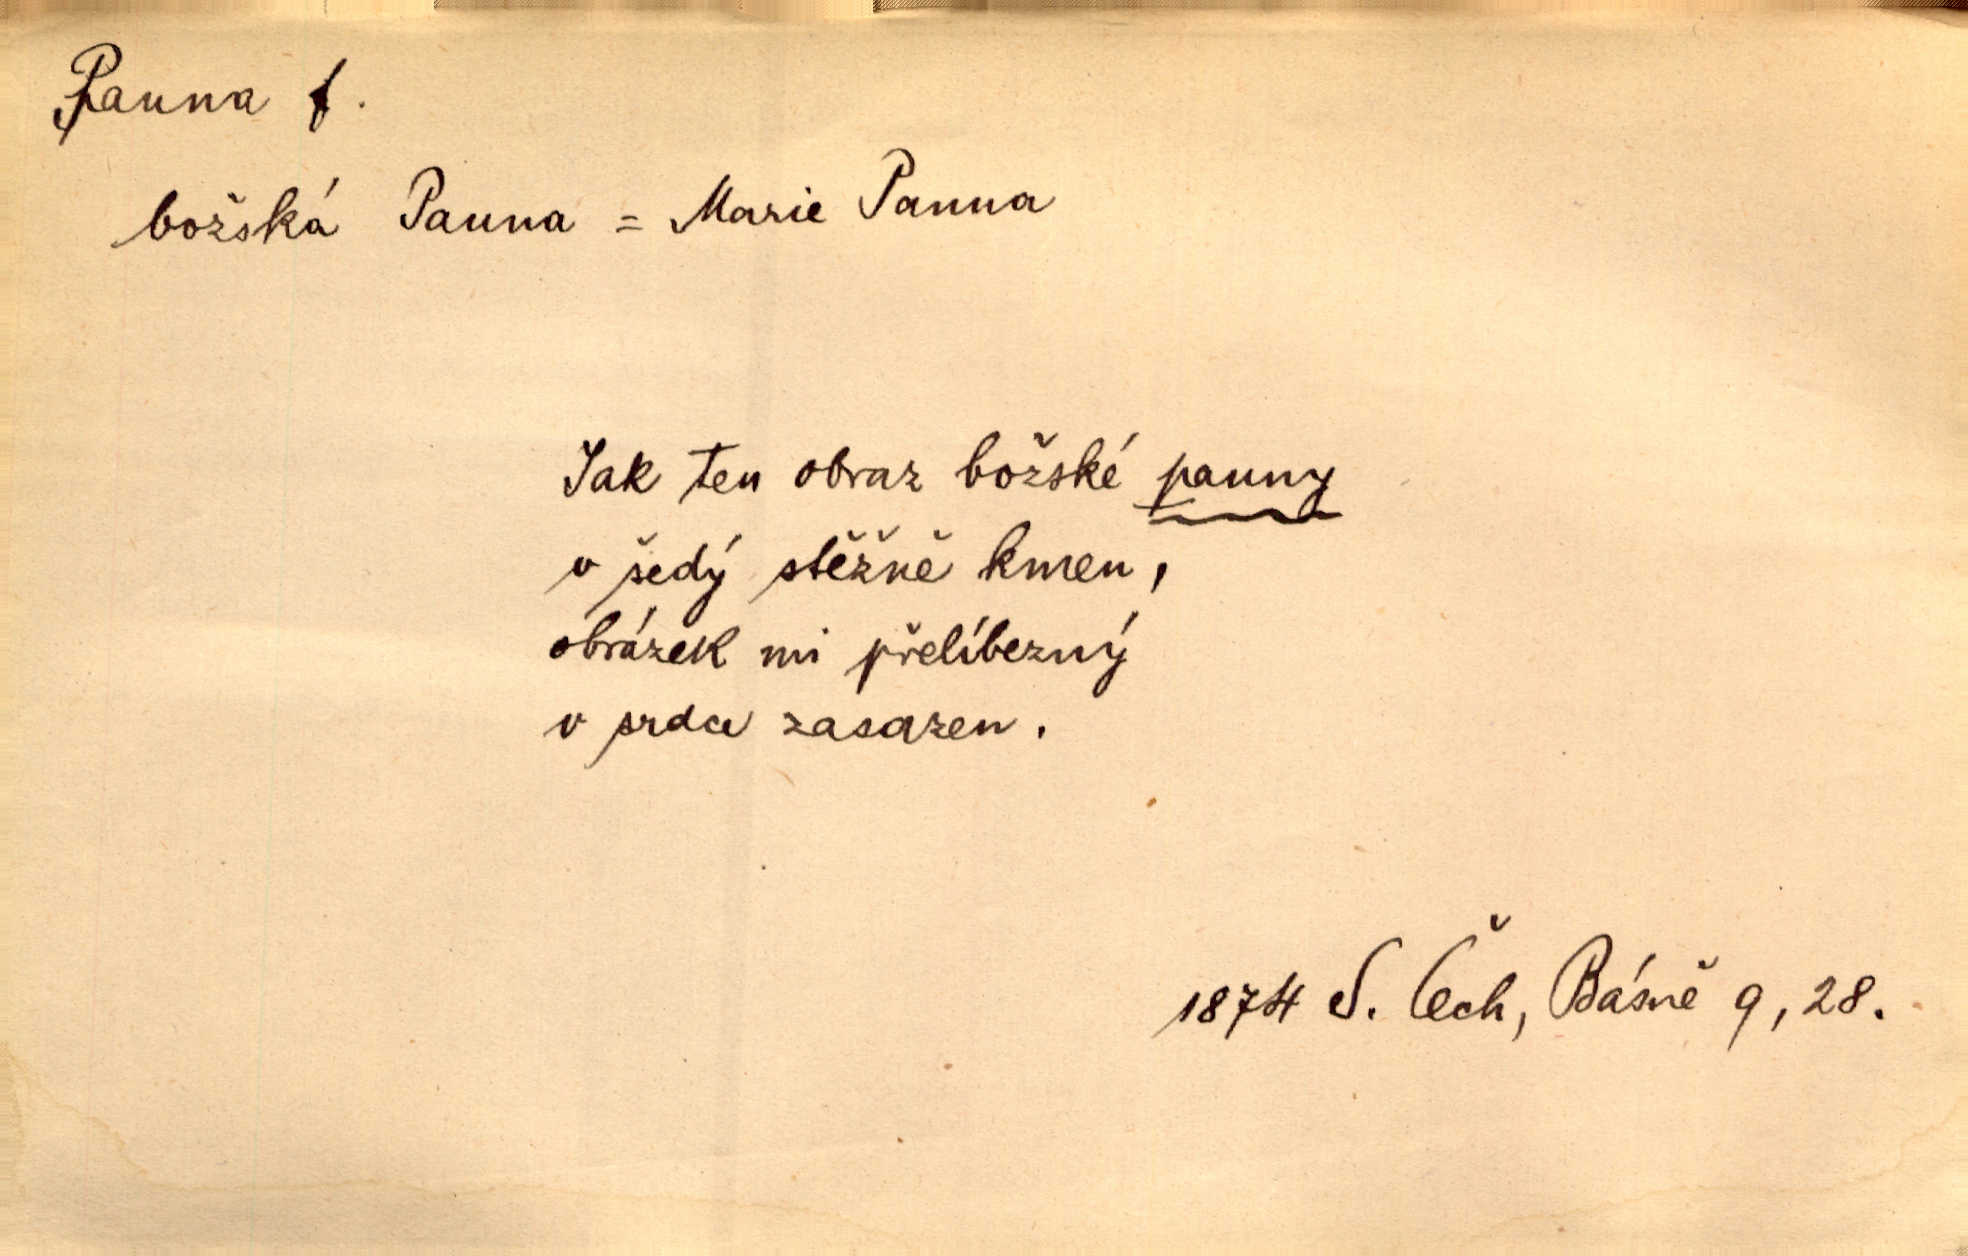 Panna f.
božská Panna = Marie Panna
Jak ten obraz božské panny
v šedý stěžně kmen,
obrázek mi přelíbezný
v srdce zasazen.
1874 S. Čech, Básně 9, 28.